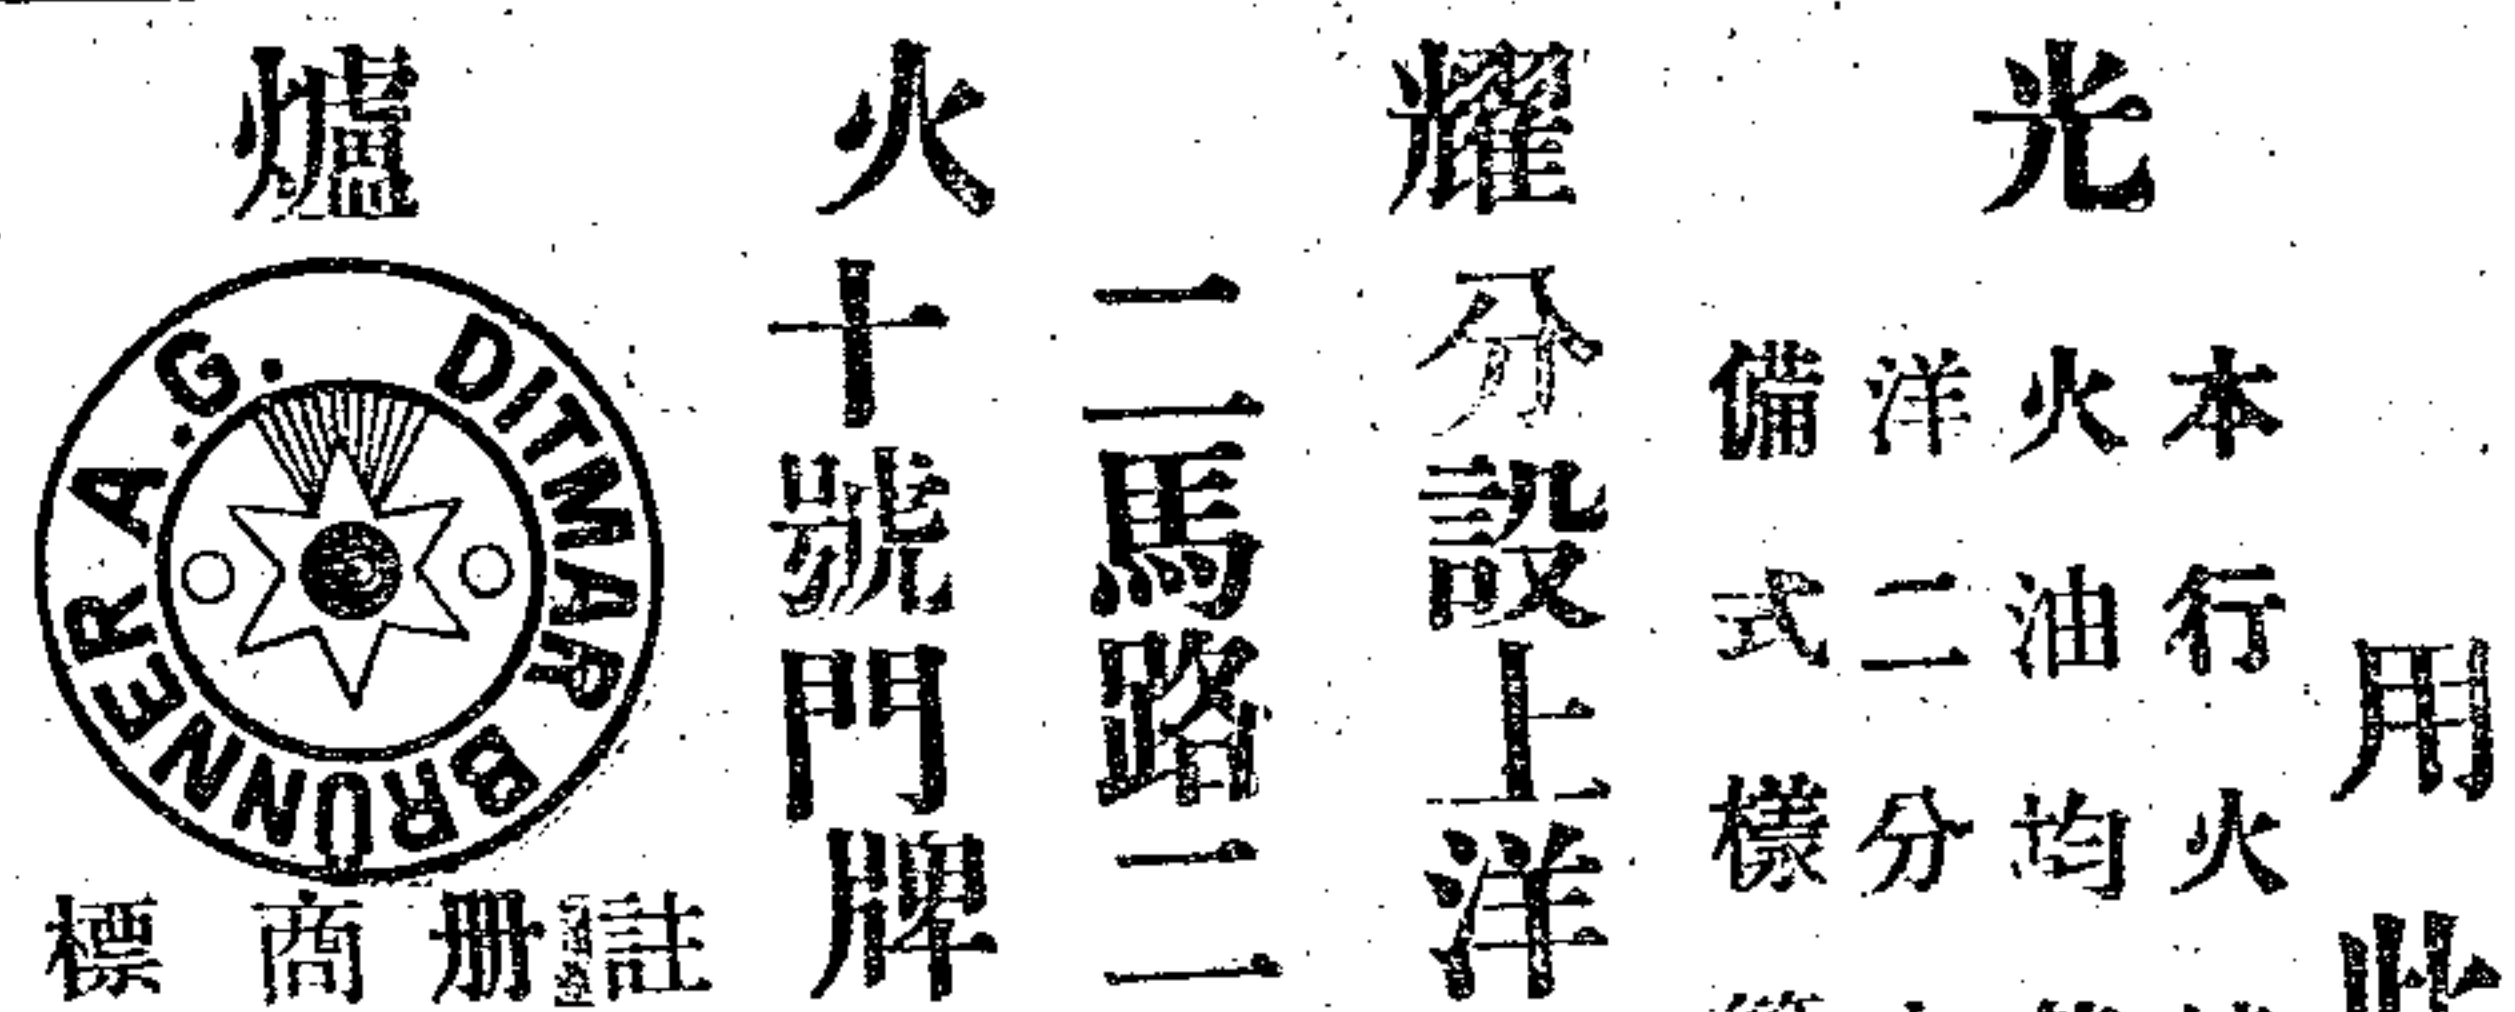 光耀火爐
用此
本行火
火油均
洋二分
備式樣
分設上洋
二馬路二
十號門牌
DITMAR BRUNNER A.G.
註冊商標